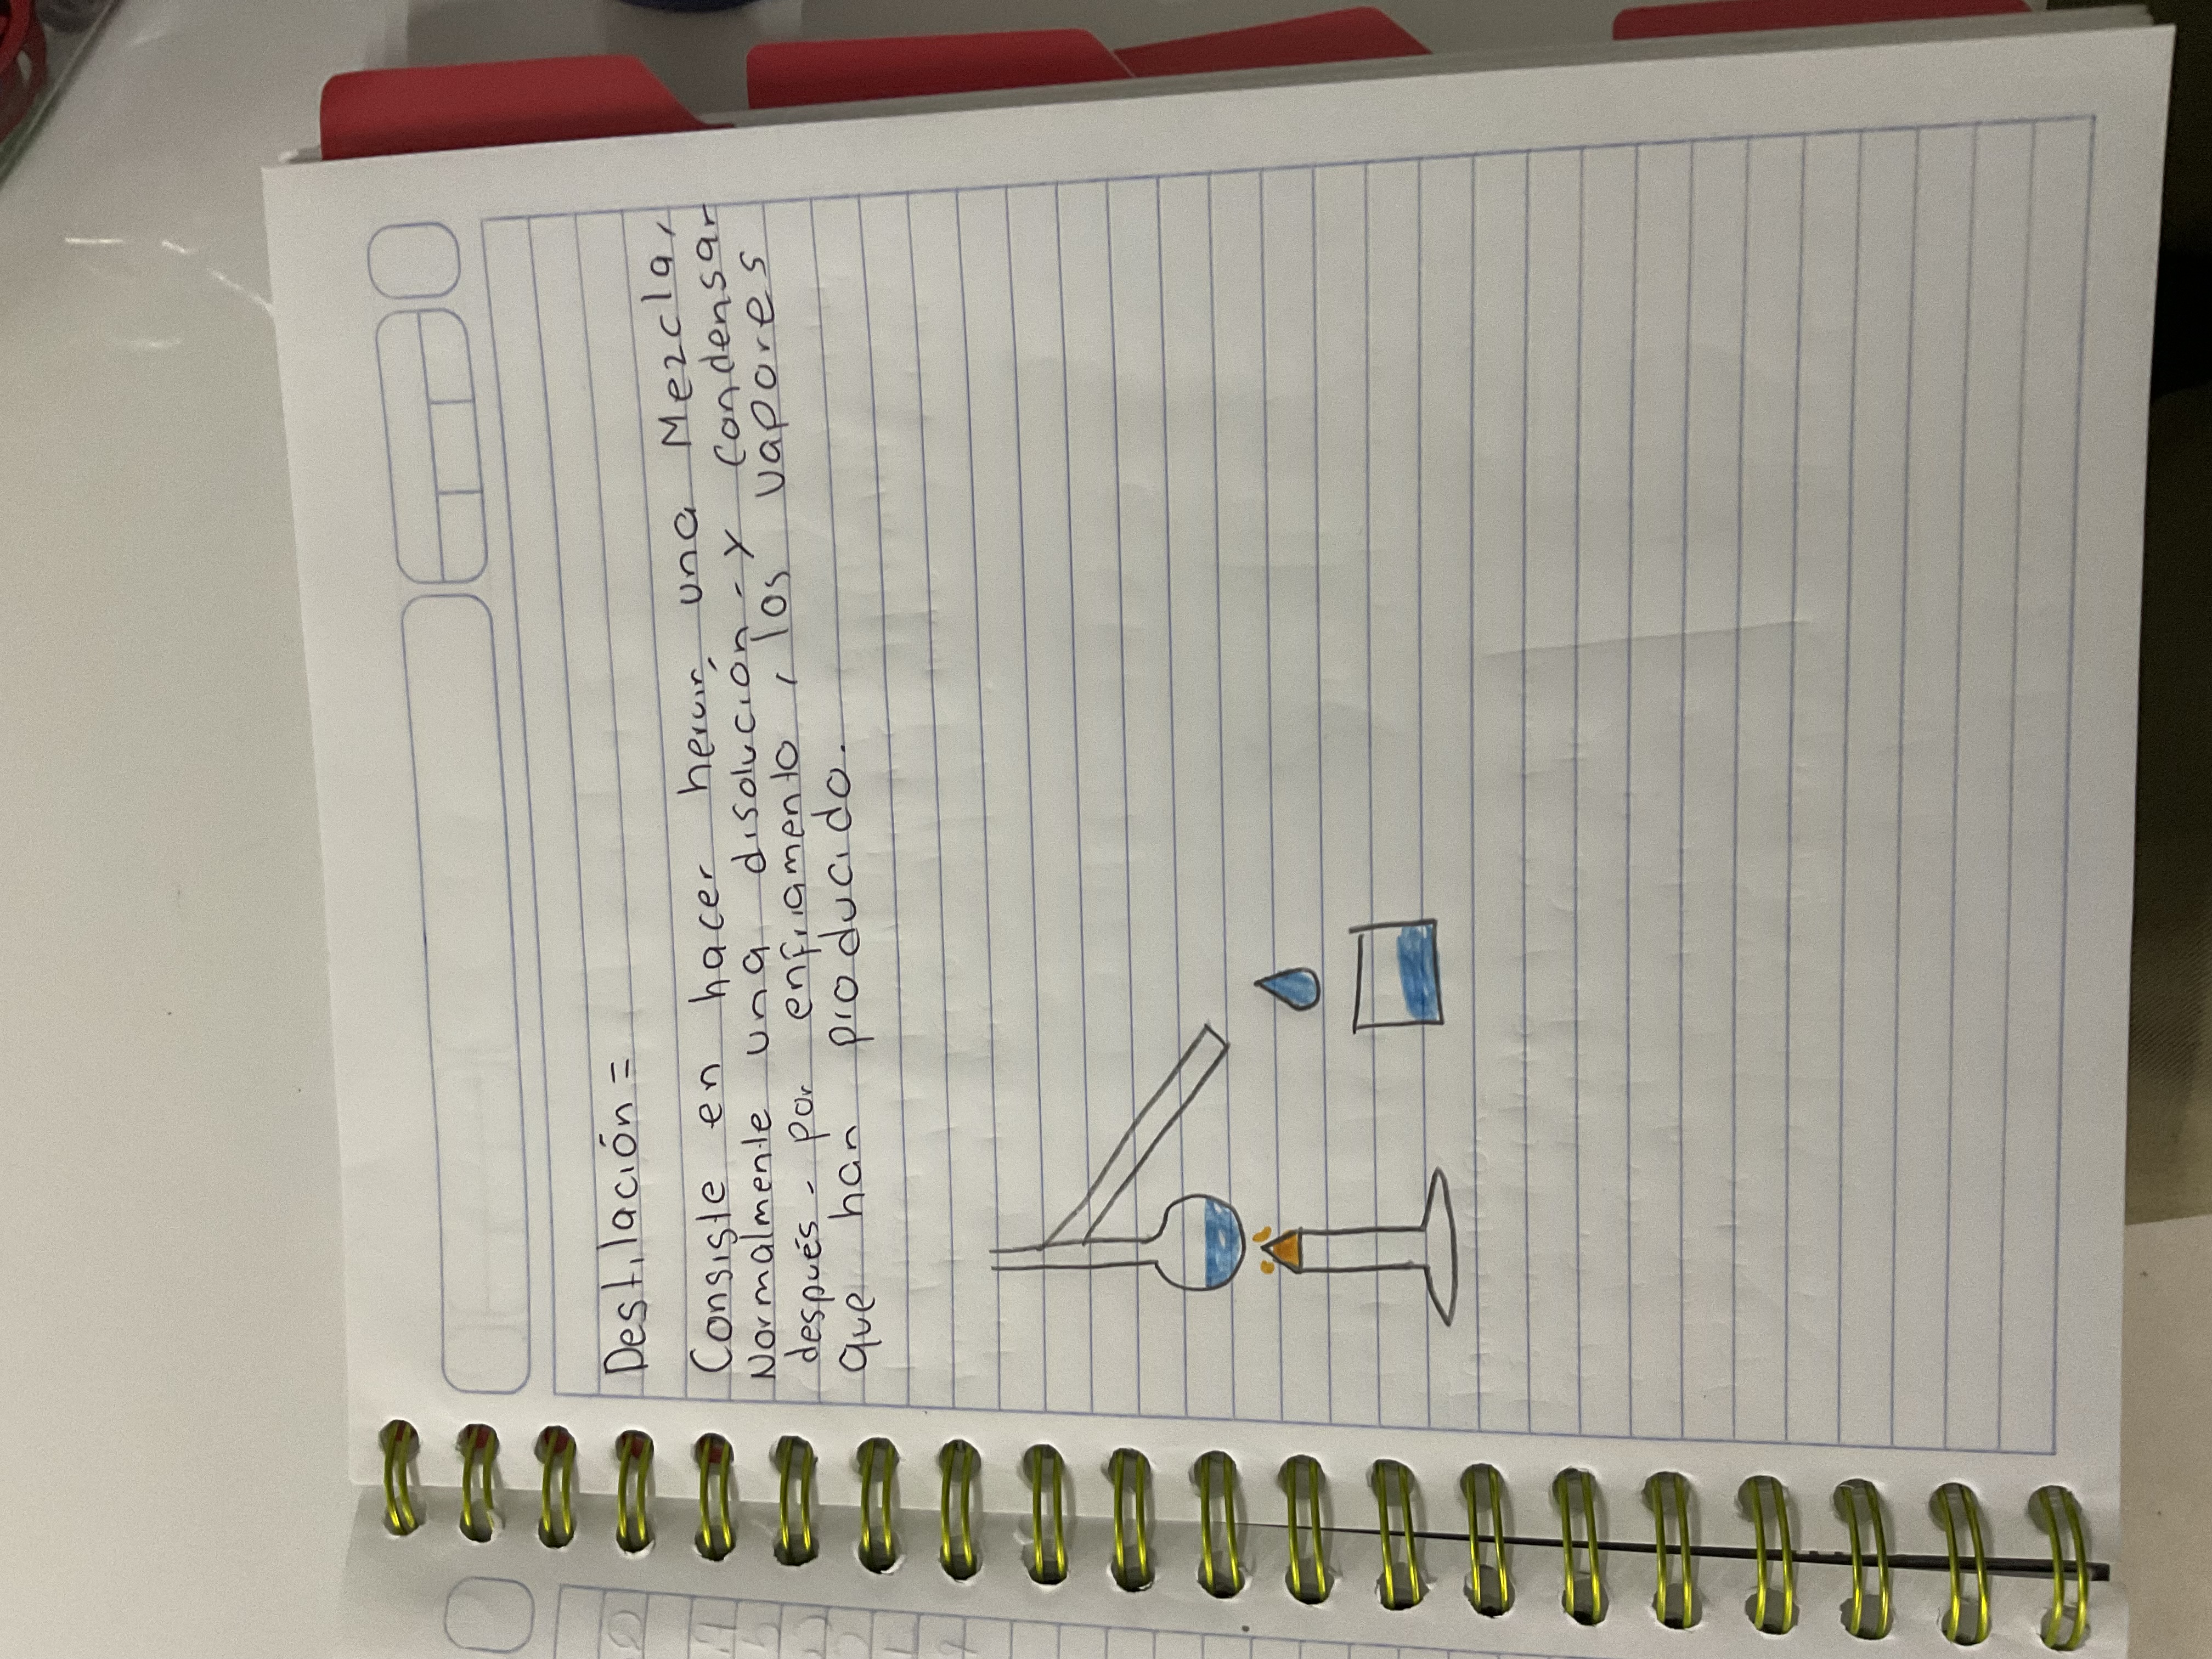 Destilación =
Consiste en hacer hervir, una Mezcla,
Normalmente una disolución - y condensar
después - por enfriamento, los vapores
que han producido.